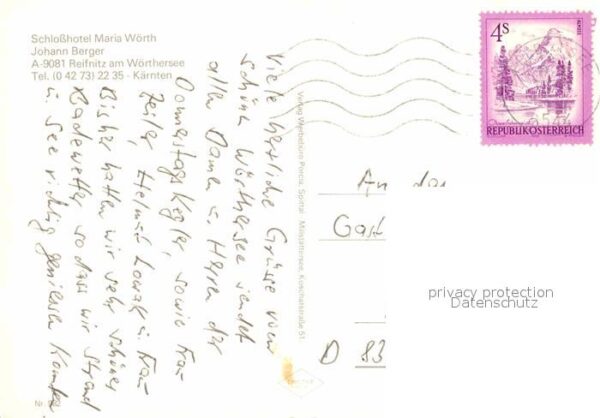 Schloßhotel Maria Wörth
Johann Berger
A-9081 Reifnitz am Wörthersee
Tel. (0 42 73) 22 35 - Kärnten
Viele herzliche Grüsse vom
schönen Wörthersee sendet
allen Damen u. Herrn der
Donnerstagskegler, sowie Frau
Zeiler, Helmut u. Frau
Bisher hatten wir sehr schönes
Badewetter so dass wir Strand
u. See richtig geniessen
Nr.
Verlag Werbebüro Porcia, Spittal - Millstättersee, Koschatstraße 51
4S
REPUBLIK ÖSTERREICH
An das
Gast
D 83
privacy protection
Datenschutz